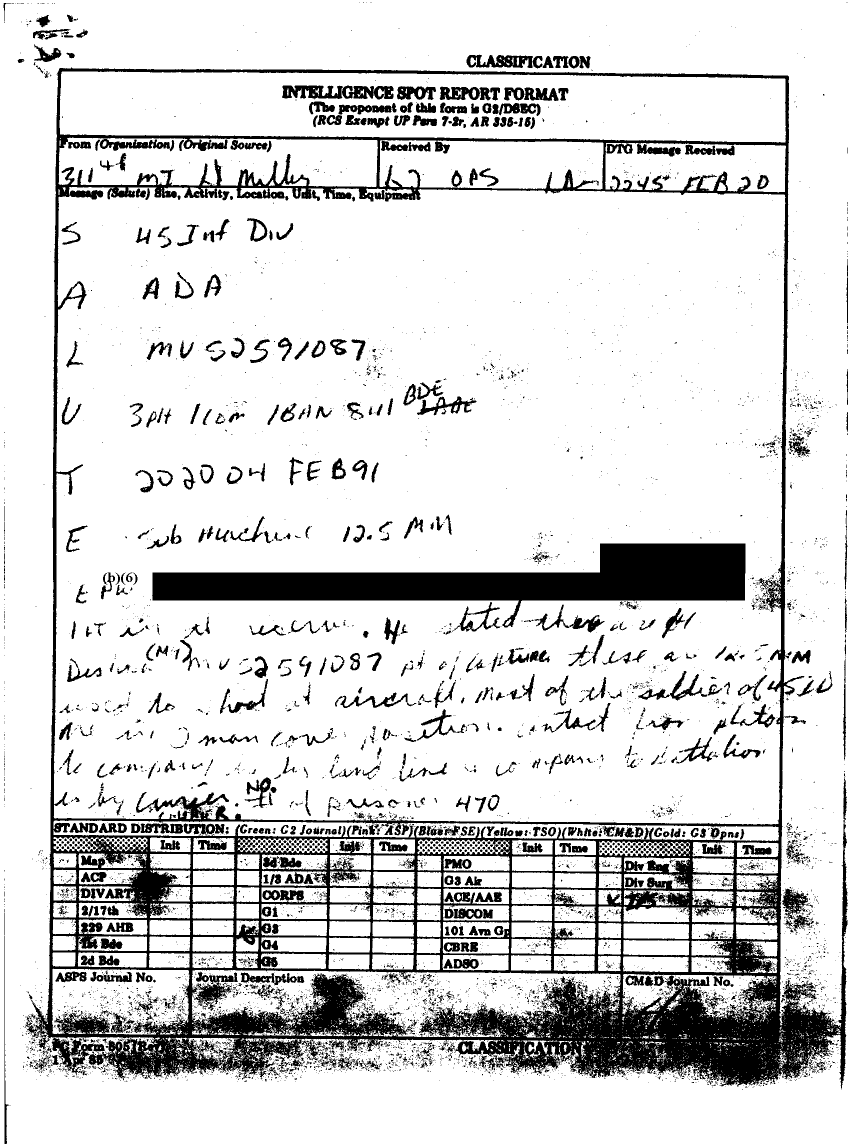 CLASSIFICATION
INTELLIGENCE SPOT REPORT FORMAT
(The proponent of this form is G2/DSEC)
(RCS Exempt UP Para 7-2r, AR 335-15)
From (Organization) (Original Source) Received By DTG Message Received
311th MI Lt G2 OPS 2245 FEB 20
Message (Salute) Size, Activity, Location, Unit, Time, Equipment
S 45 Inf Div
A ADA
L MU52591087
U 3plt 1com 1BAN 841 BDE
T 202004 FEB91
E Sub Machine 12.5 MM
(b)(6)
EPW
1LT in reserve. He stated there are
MU52591087 pt of capture these are 12.5 MM
used to shoot at aircraft. Most of the soldier of 45ID
are in 2 man cover position. contact from platoon
to company is by land line & company to battalion
is by Currier. NO. of prisoner 470
STANDARD DISTRIBUTION: (Green: G2 Journal)(Pink: ASP)(Blue: FSE)(Yellow: TSO)(White: CM&D)(Gold: G3 Opns)
Init Time Init Time Init Time Init Time
Map 3d Bde PMO Div Eng
ACP 1/3 ADA G3 Air Div Surg
DIVART CORPS ACE/AAE
2/17th G1 DISCOM
229 AHB G3 101 Avn Gp
1st Bde G4 CBRE
2d Bde G5 ADSO
ASPS Journal No. Journal Description CM&D Journal No.
FC Form
CLASSIFICATION